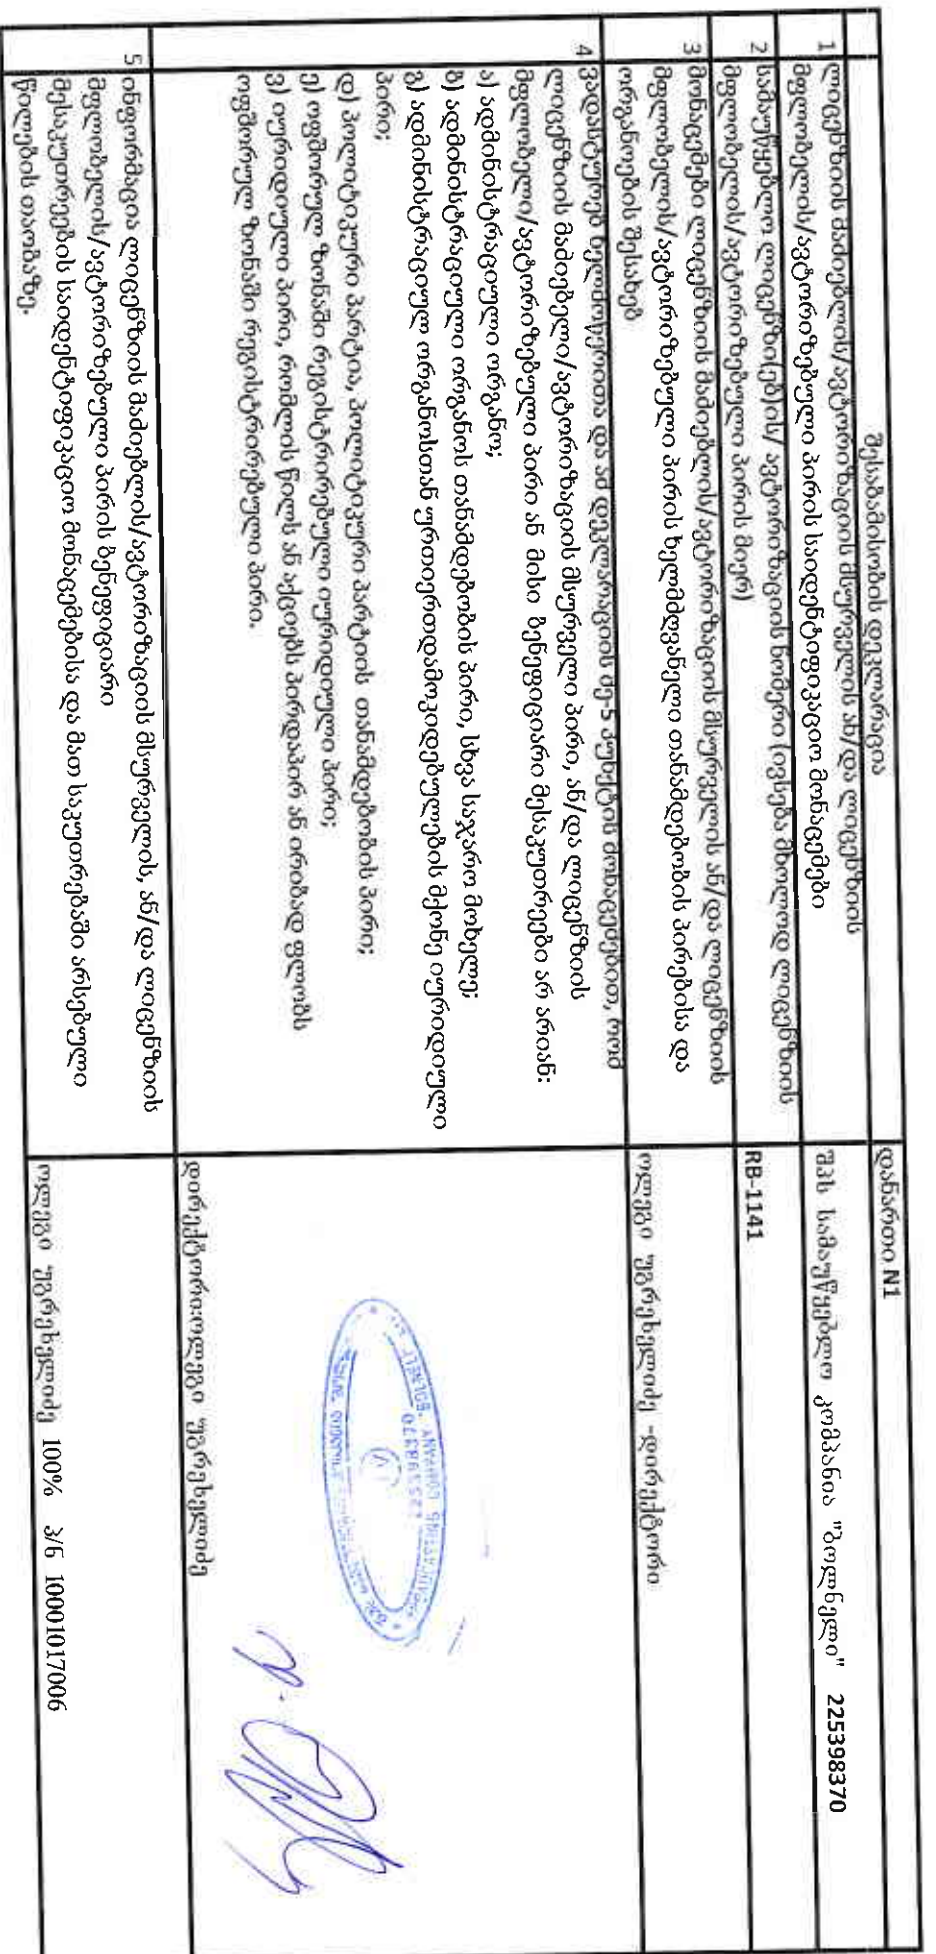 შესაბამისობის დეკლარაცია
დანართი N1
1 ლიცენზიის მაძიებლის/ავტორიზაციის მსურველის ან/და ლიცენზიის
მფლობელის/ავტორიზებული პირის საიდენტიფიკაციო მონაცემები
შპს სამაუწყებლო კომპანია "ბოლნელი" 225398370
2 სამაუწყებლო ლიცენზიის(ების)/ ავტორიზაციის ნომერი (ივსება მხოლოდ ლიცენზიის
მფლობელის/ავტორიზებული პირის მიერ)
RB-1141
3 მონაცემები ლიცენზიის მაძიებლის/ავტორიზაციის მსურველის ან/და ლიცენზიის
მფლობელის/ავტორიზებული პირის ხელმძღვანელი თანამდებობის პირებისა და
ორგანოების შესახებ
ოლეგი უგრეხელიძე -დირექტორი
4 ვადასტურებ ხელმოწერითა და ამ დეკლარაციის მე-5 პუნქტის მონაცემებით, რომ
ლიცენზიის მაძიებელი/ავტორიზაციის მსურველი პირი, ან/და ლიცენზიის
მფლობელი/ავტორიზებული პირი ან მისი ბენეფიციარი მესაკუთრეები არ არიან:
ა) ადმინისტრაციული ორგანო;
ბ) ადმინისტრაციული ორგანოს თანამდებობის პირი, სხვა საჯარო მოხელე;
გ) ადმინისტრაციულ ორგანოსთან ურთიერთდამოკიდებულების მქონე იურიდიული
პირი;
დ) პოლიტიკური პარტია, პოლიტიკური პარტიის თანამდებობის პირი;
ე) ოფშორულ ზონაში რეგისტრირებული იურიდიული პირი;
ვ) იურიდიული პირი, რომლის წილს ან აქციებს პირდაპირ ან ირიბად ფლობს
ოფშორულ ზონაში რეგისტრირებული პირი.
225398370
დირექტორი:ოლეგი უგრეხელიძე
5 ინფორმაცია ლიცენზიის მაძიებლის/ავტორიზაციის მსურველის, ან/და ლიცენზიის
მფლობელის/ავტორიზებული პირის ბენეფიციარი
მესაკუთრეების საიდენტიფიკაციო მონაცემებისა და მათ საკუთრებაში არსებული
წილების თაობაზე.
ოლეგი უგრეხელიძე 100% პ/ნ 10001017006